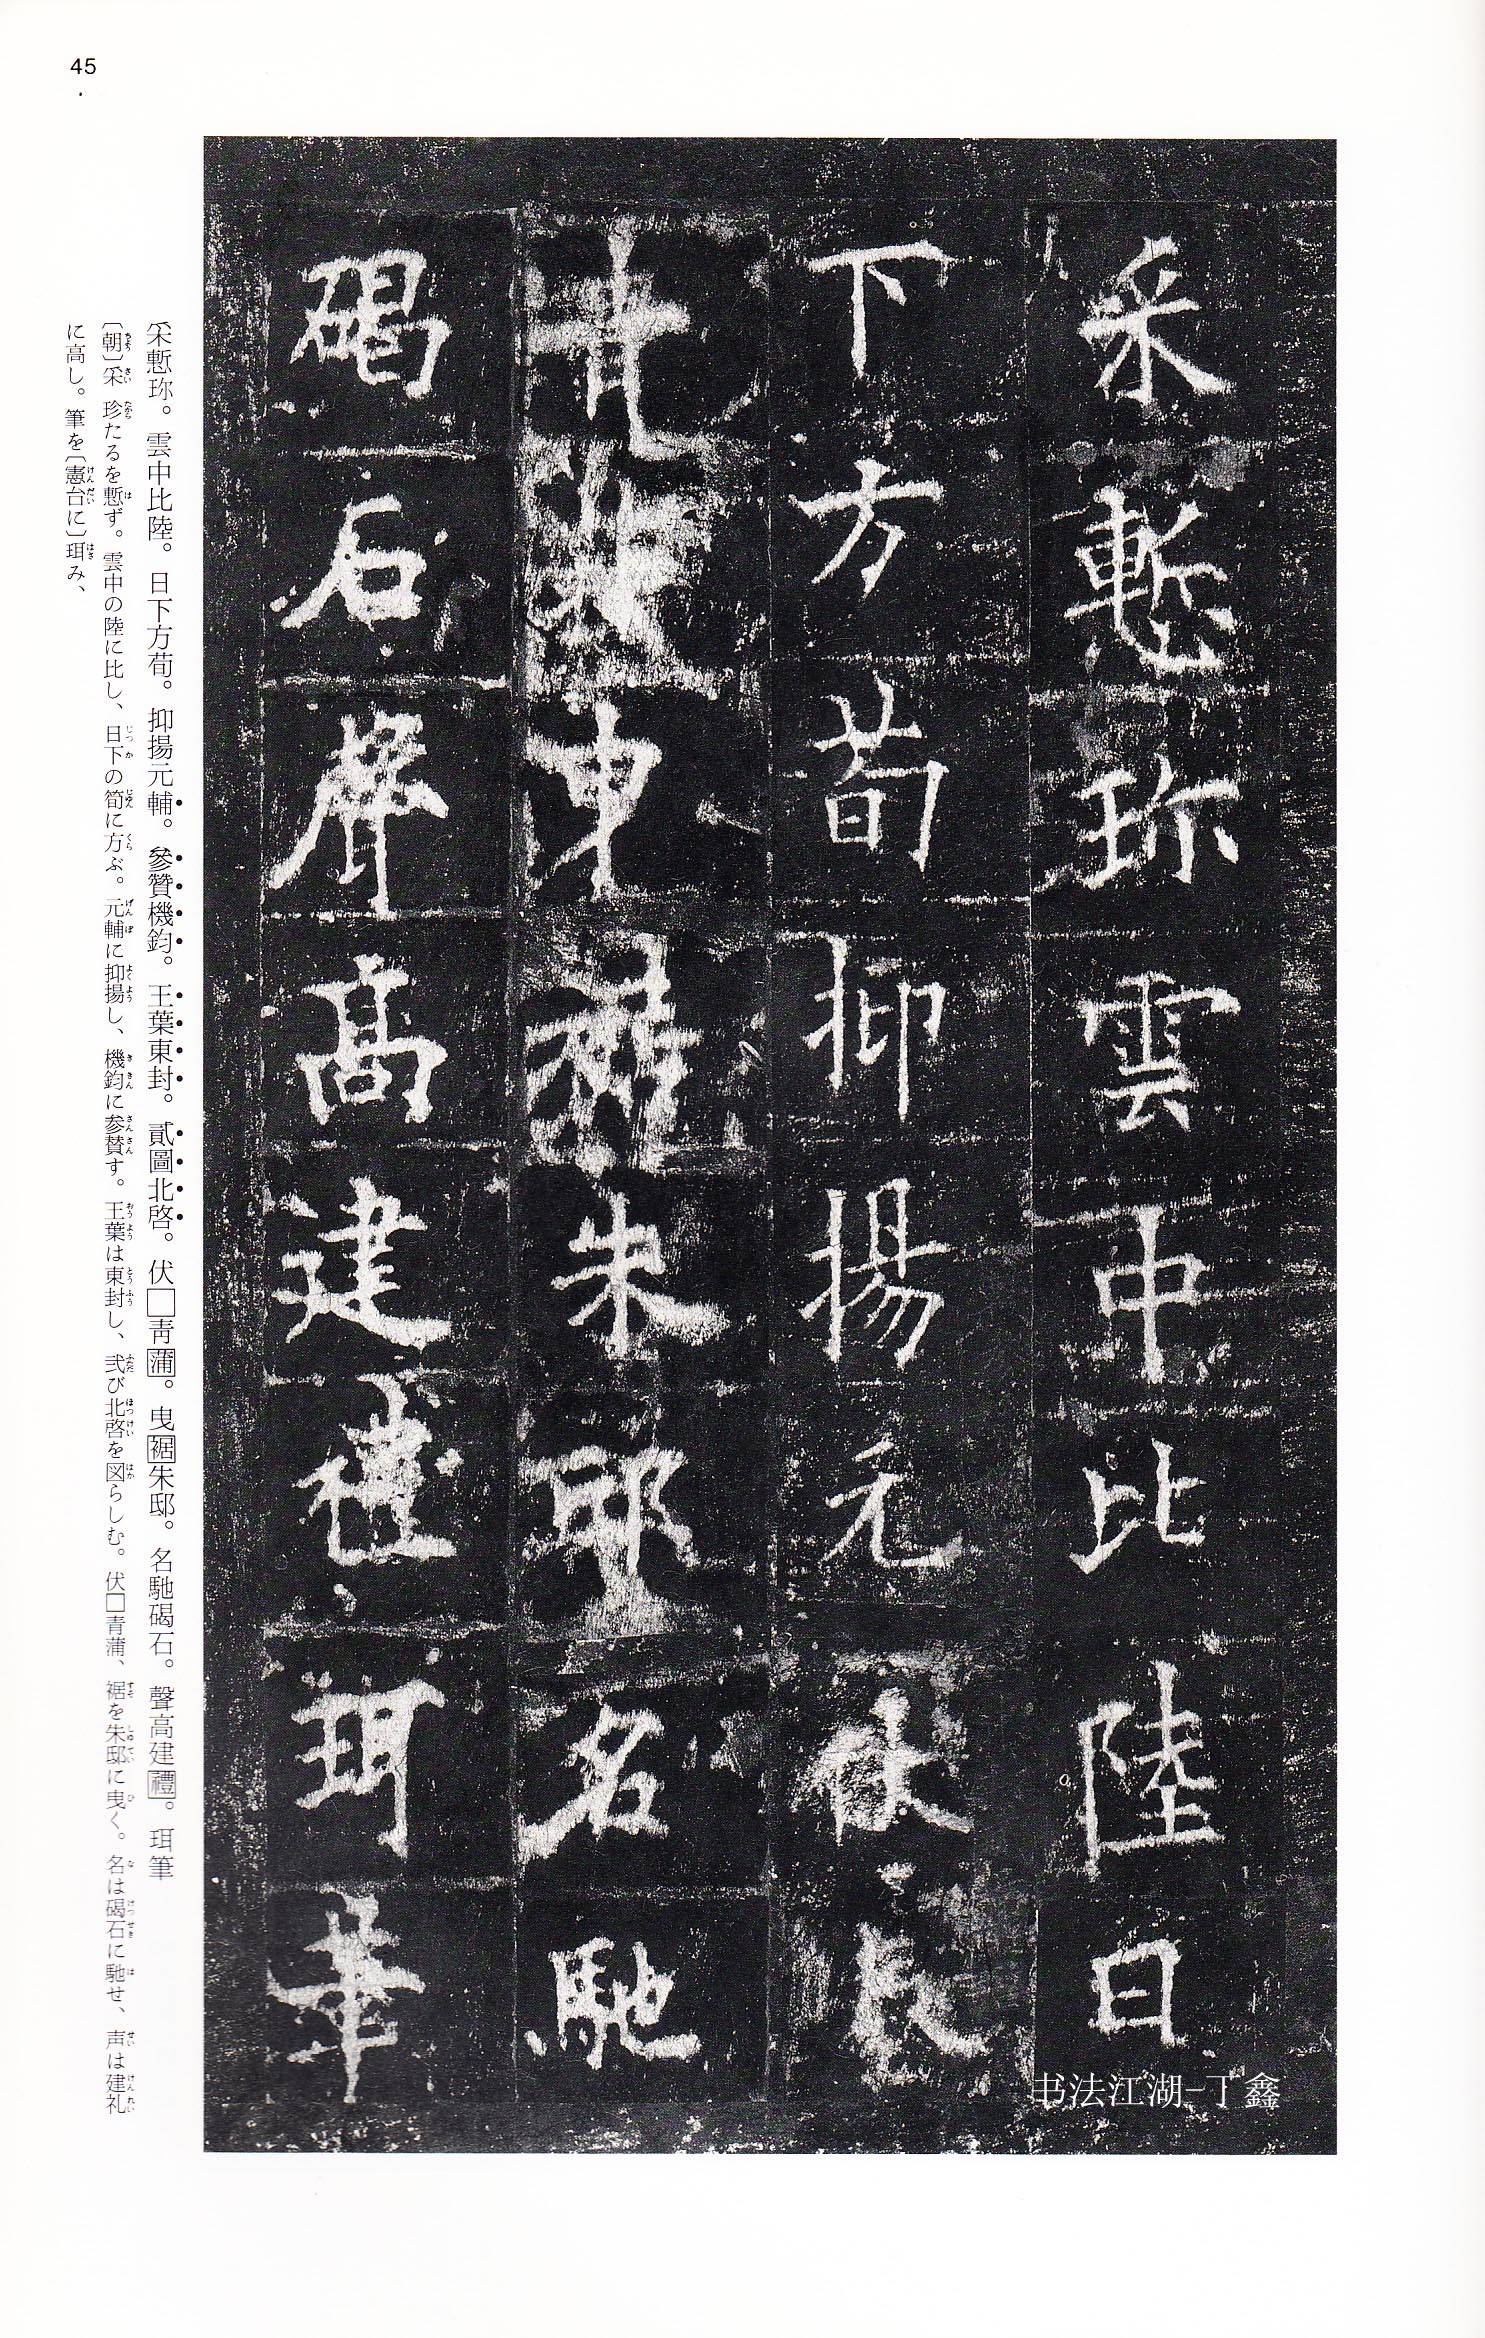 45
采慙珎雲中比陸日
下方荀抑揚元伏
青蒲曳裾朱邸名馳
碣石聲高建禮珥筆
书法江湖-丁鑫
采慙珎。雲中比陸。日下方荀。抑揚元輔。參贊機鈞。王葉東封。貳圖北啓。伏□青蒲。曳裾朱邸。名馳碣石。聲高建禮。珥筆
〔朝〕采珍たるを慙ず。雲中の陸に比し、日下の筍に方ぶ。元輔に抑揚し、機鈞に参賛す。王葉は東封し、弐び北啓を図らしむ。伏□青蒲、裾を朱邸に曳く。名は碣石に馳せ、声は建礼
に高し。筆を〔憲台に〕珥み、